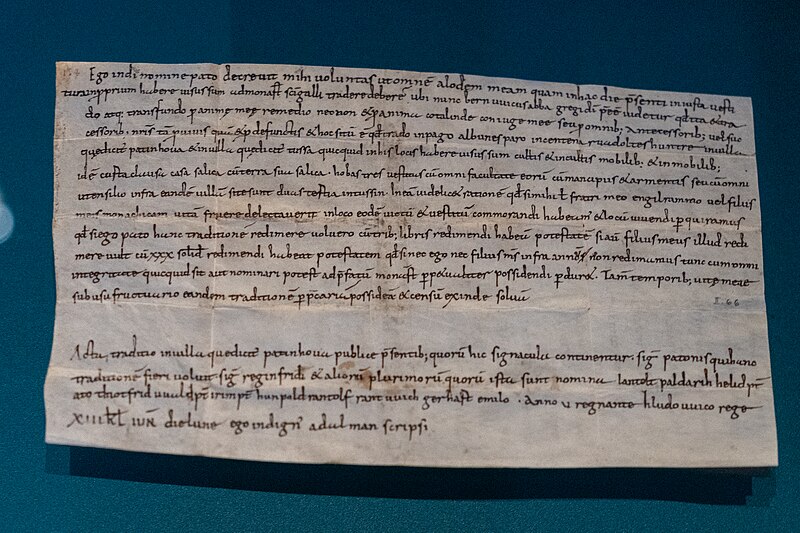 Ego indi nomine pato decrevit mihi voluntas ut omnē alodem meam quam in hac die p̄senti in iusta vesti
tura inpprium habere visus sum ad monast̄ sc̄i galli tradere deberē ubi nunc bernuuicus abba gregi dī p̄eē videtur q̄d ita &
do atq; transfundo p anime meę remedio necnon & p anima cotalinde coniuge mee seu p omnib; antecessorib; vel suc
cessorib; nr̄is tā p vivis quā & p defunctis & hoc sit ē q̄d trado in pago albunespara in centena ruadoltes huntre in villa
que dicit̄ patinhova & in villa que dicit̄ tussa quicquid in his locis habere visus sum cultis & incultis mobilib; & inmobilib;
id ē casta clausa casa salica cū terra sua salica hobas tres vestitas cū omni facultate eorū cū mancipiis & armentis seu cū omni
utensilio infra eandē villā
mei monachicam vitā fruere delectaverit in loco eodē victū & vestitū commorandi habeam & locū vivendi
q̄d si ego pato hanc traditionē redimere voluero cū trib; libris redimendi habeā potestatē si aū filius meus illud redi
mere vult cū XXX solid̄ redimendi habeat potestatem q̄d si nec ego nec filius m̄s infra annos non redimamus tunc cum omni
integritate quicquid sit aut nominari potest ad p̄fatū monast̄ p p&ualit& possidendi p dur& . Tam̄ temporib; vite meae
sub usu fructuario eandem traditionē p p̄cariā possideā & censū exinde solvā
II. 66
Acta traditio in villa que dicit̄ patinhova publice p̄sentib; quorū hic signacula continentur. sig̅ patonis qui hanc
traditionē fieri voluit sig̅ reginfridi & aliorū plurimorū quorū ista sunt nomina lantolt paldarih helid
ato thiotfrid hunpald rantolf rantuuich gerhast emilo . Anno v regnante hludouuico rege
XIIII kl̄ iun̄ die lune ego indign̄ adulman scripsi